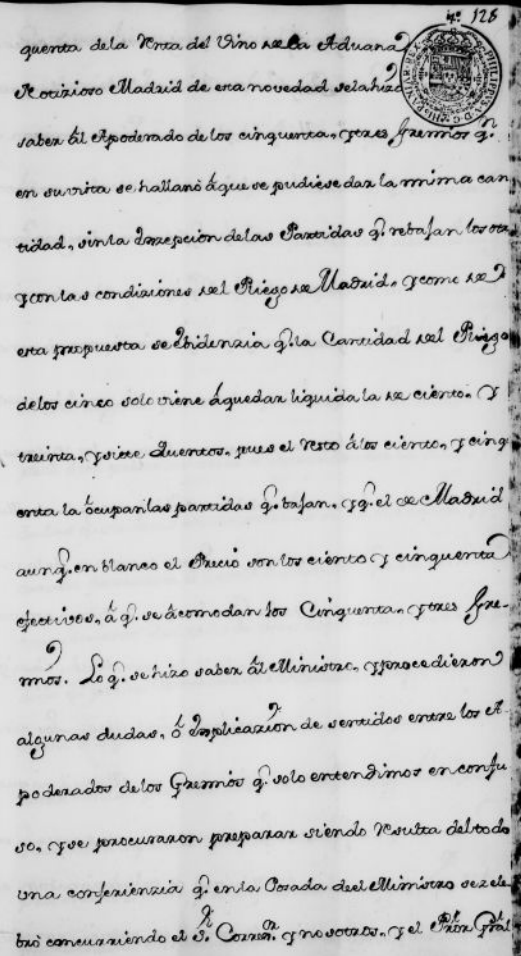 4.º 128
quenta de la Venta del Vino de la Aduana
Notizioso Madrid de esta novedad se la hizo
saber ál Apoderado de los cinquenta, y tres Gremios q.
en su vista se hallanó á que se pudiese dar la misma can
tidad, sin la Excepcion de las Partidas q. rebajan los otr
y con las condiziones del Pliego de Madrid, y como de
esta propuesta se Evidenzia q. la Cantidad del Pliego
de los cinco solo viene á quedar liquida la de ciento, y
treinta, y siete Quentos, pues el resto á los ciento, y cinq
enta la ócupan las partidas q. bajan, y q. el de Madrid
aunq. en blanco el Precio son los ciento y cinquenta
efectivos, á q. se ácomodan los Cinquenta, y tres Gre-
mios. Lo q. se hizo saber ál Ministro, y procedieron
algunas dudas, ó Ymplicazion de sentidos entre los A-
poderados de los Gremios q. solo entendimos en confu
so, y se procuraron preparar siendo resulta del todo
una conferienzia q. en la Posada de el Ministro se zele
bró concurriendo el S.r Correx.or y nosotros, y el Pror Gral